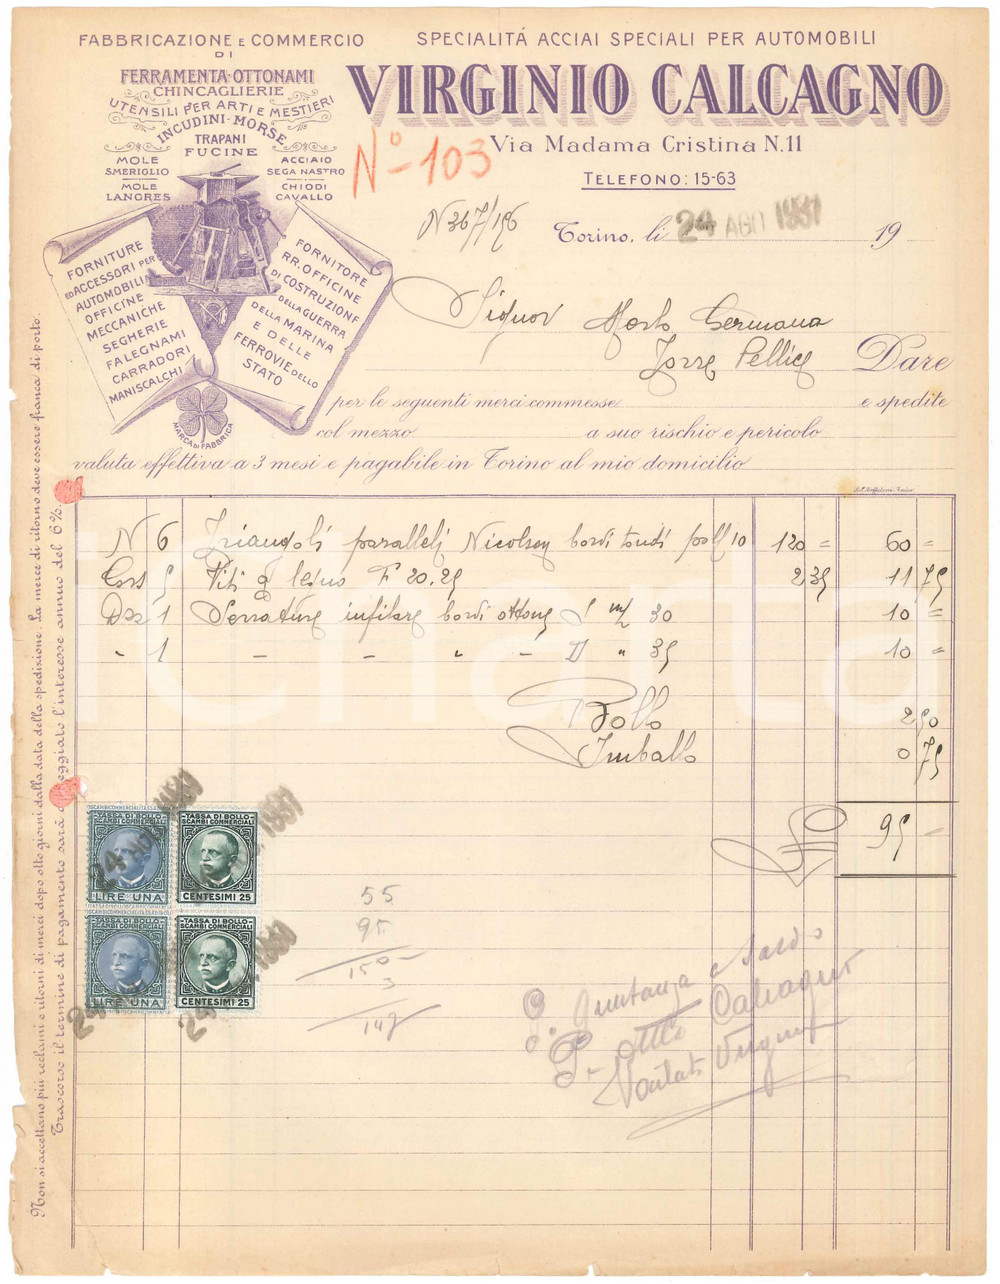 FABBRICAZIONE E COMMERCIO
DI
FERRAMENTA-OTTONAMI
CHINCAGLIERIE
UTENSILI PER ARTI E MESTIERI
INCUDINI-MORSE
TRAPANI
FUCINE
MOLE
SMERIGLIO
MOLE
LANGRES
ACCIAIO
SEGA NASTRO
CHIODI
CAVALLO
SPECIALITÁ ACCIAI SPECIALI PER AUTOMOBILI
VIRGINIO CALCAGNO
Via Madama Cristina N.11
TELEFONO: 15-63
No-103
N 367/196
Torino, li 24 AGO 1931 19
FORNITURE
ED ACCESSORI PER
AUTOMOBILI
OFFICINE
MECCANICHE
SEGHERIE
FALEGNAMI
CARRADORI
MANISCALCHI
FORNITORE
RR.OFFICINE
DI COSTRUZIONE
DELLA GUERRA
DELLA MARINA
E DELLE
FERROVIE DELLO
STATO
MARCA DI FABBRICA
Signor Germana
Torre Pellice Dare
per le seguenti merci commesse e spedite
col mezzo a suo rischio e pericolo
valuta effettiva a 3 mesi e pagabile in Torino al mio domicilio
N 6 Triangoli paralleli Nicolson bordi tondi poll 10 120 = 60 =
5 Viti a legno F 20.25 2 35 11 75
Doz 1 Serrature infilare bordi ottone S m/m 30 10 =
" 1 - - " - D " 35 10 =
Bollo 2 50
Imballo 0 75
95 -
TASSA DI BOLLO
SCAMBI COMMERCIALI
LIRE UNA
TASSA DI BOLLO
SCAMBI COMMERCIALI
CENTESIMI 25
TASSA DI BOLLO
SCAMBI COMMERCIALI
LIRE UNA
TASSA DI BOLLO
SCAMBI COMMERCIALI
CENTESIMI 25
24 AGO 1931
55
95
150
3
147
P. Quietanza a Saldo
P. Ditta Calcagno
Virginio
Non si accettano più reclami e ritorni di merci dopo otto giorni dalla data della spedizione. La merce di ritorno deve essere franca di porto.
Trascorso il termine di pagamento sarà conteggiato l'interesse annuo del 6%.